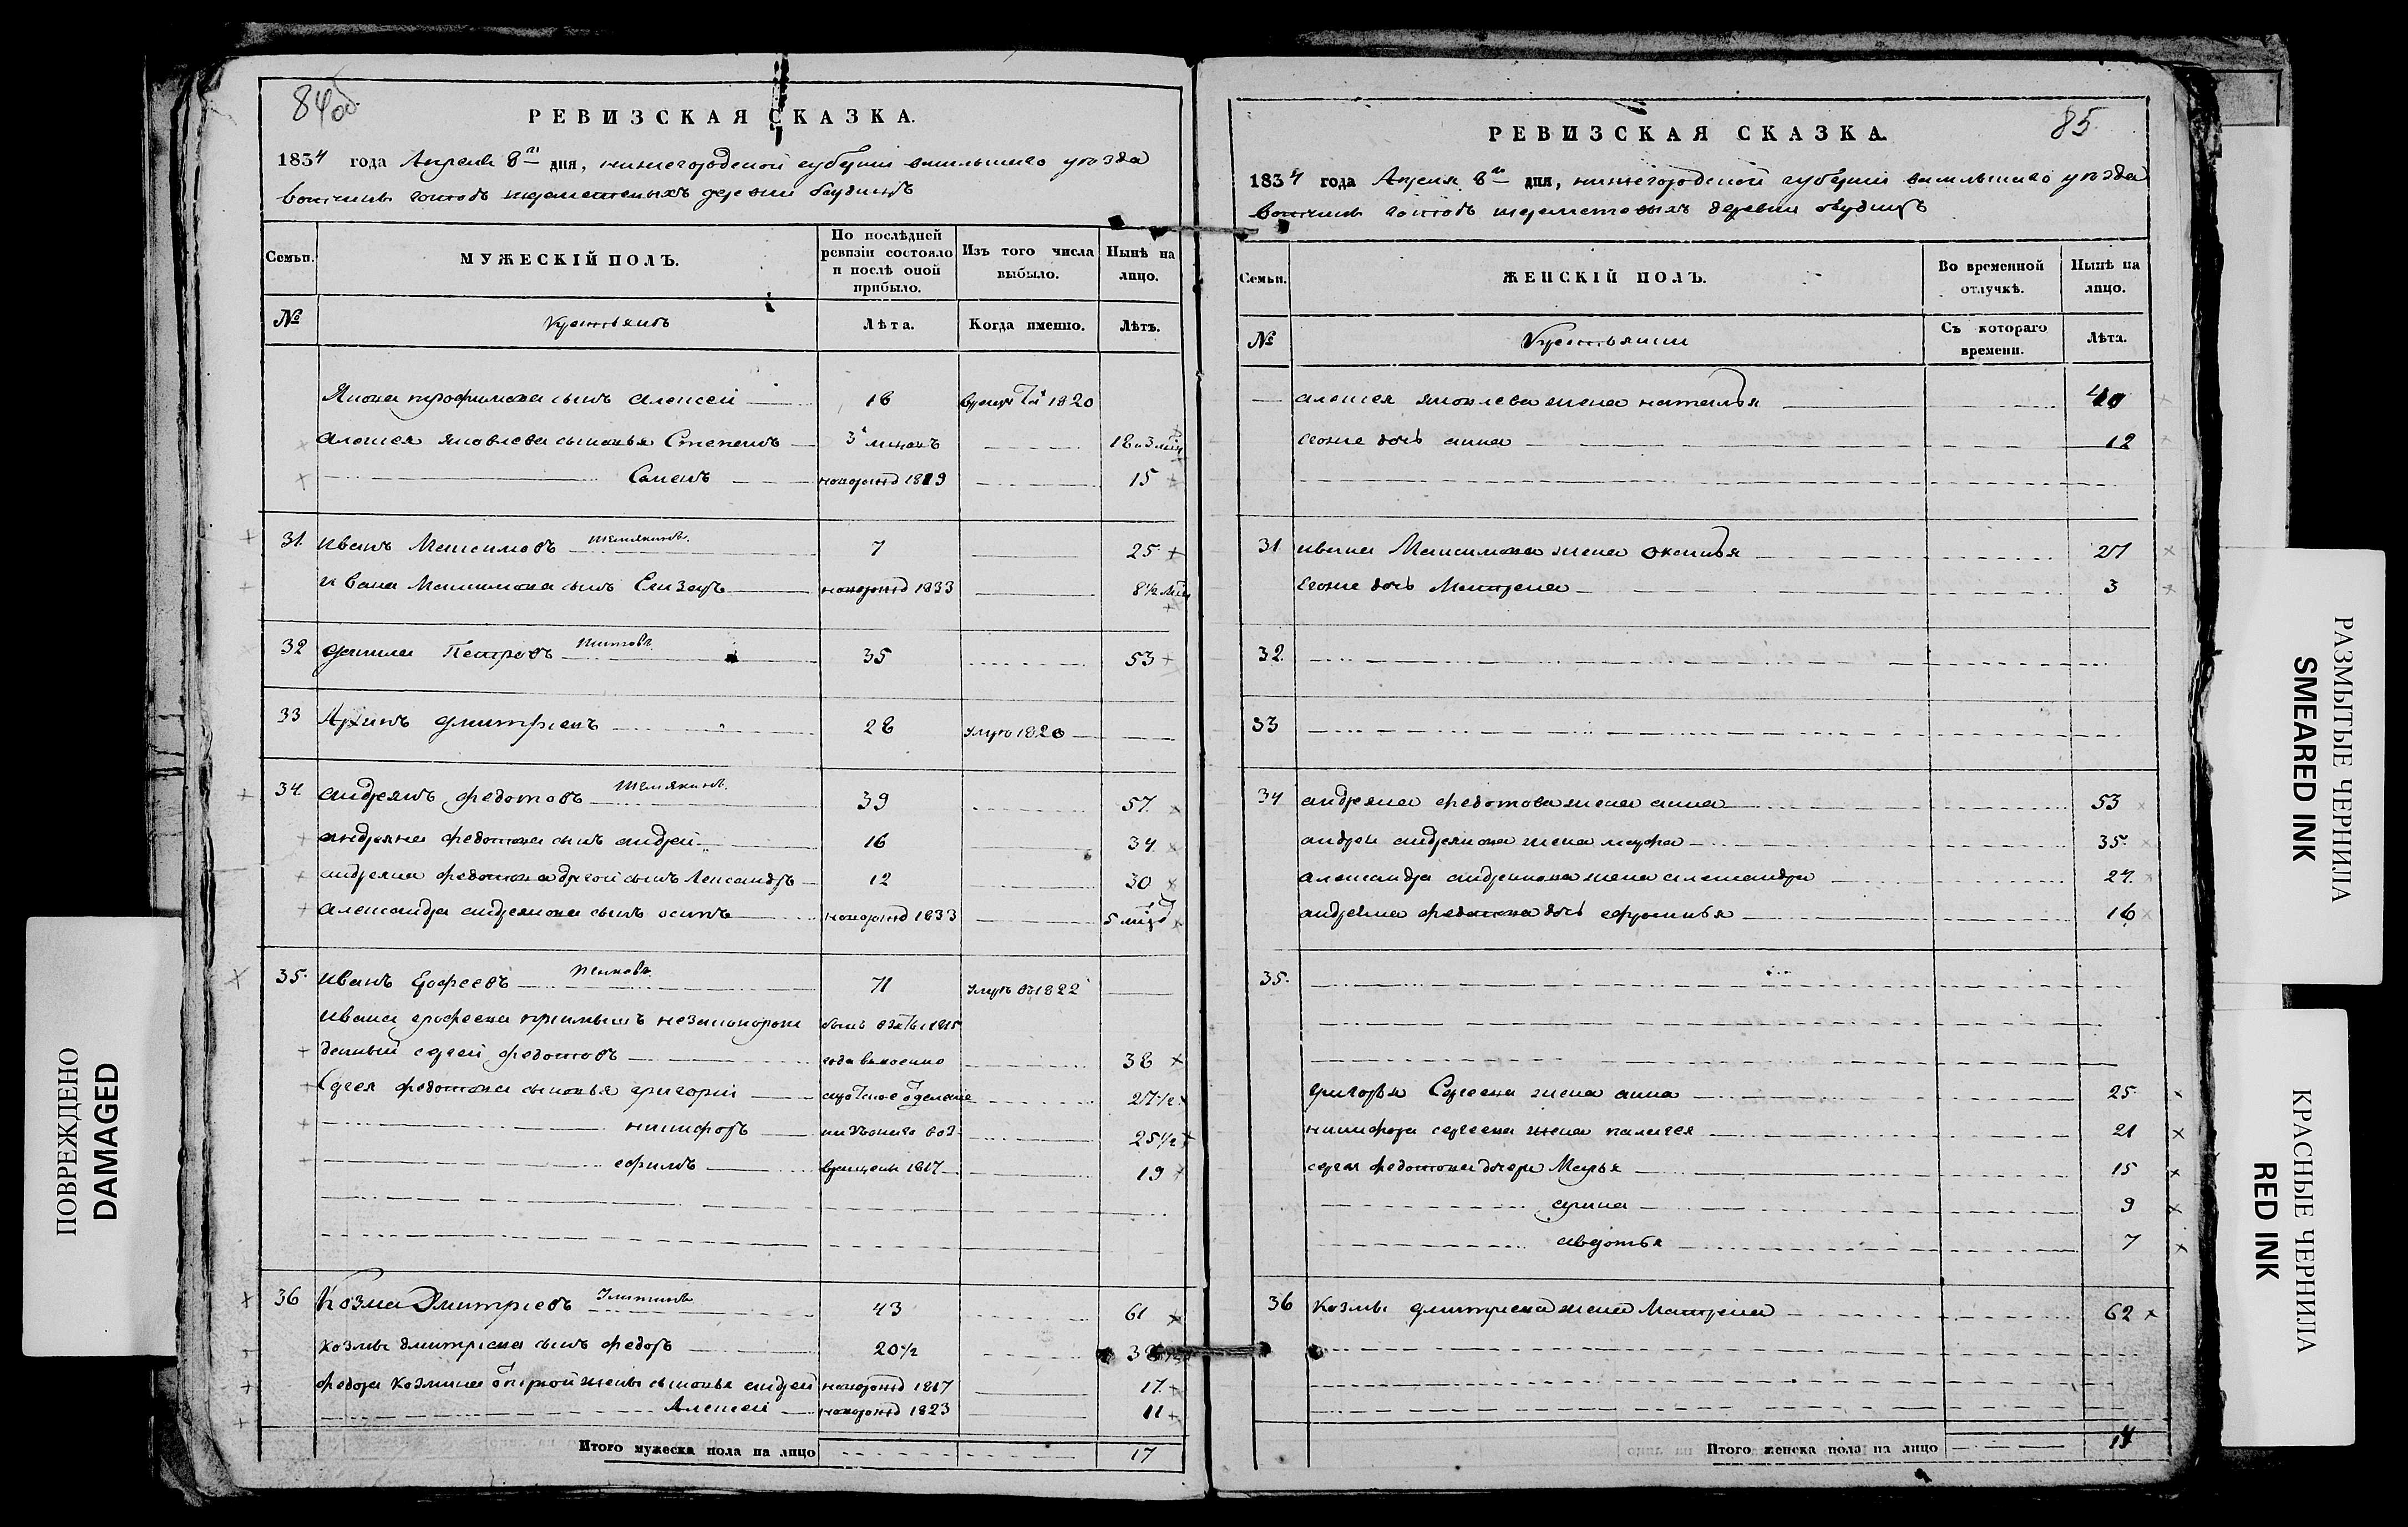 84об.
РЕВИЗСКАЯ СКАЗКА.
1834 года Апреля 8го дня, нижегородской губернии васильскаго уезда
вотчины господъ шереметевыхъ деревни
Семьи.
МУЖЕСКІЙ ПОЛЪ.
По послѣдней ревизіи состояло и послѣ оной прибыло.
Изъ того числа выбыло.
Нынѣ на лицо.
№
Крестьянъ
Лѣта.
Когда именно.
Лѣтъ.
Якова трофимова сынъ алексей 16 1820
алексея яковлева сыновья Степанъ 3 18 и 3
Семенъ новорожд 1819 15
31. иванъ Максимовъ Шемякинъ. 7 25
ивана Максимова сынъ Елизаръ новорожд 1833 8½
32 данила Петровъ Шитовъ 35 53
33 Архипъ дмитриевъ 28 умре 1820
34. андреянъ федотовъ Шемякинъ. 39 57.
андреяна федотова сынъ андрей 16 34
андреяна федотова другой сынъ Александръ 12 30
александра андреянова сынъ осипъ новорожд 1833 5
35. иванъ Ерофеевъ Пенковъ 71 умре въ 1822
ивана ерофеева приимышъ незаконорож
денный сергей федотовъ года 38
Сергея федотова сыновья григорий 27½
никифоръ 25½
ефимъ 1817 19
36 Козма Дмитриевъ 43 61
козмы дмитриева сынъ федоръ 20½
федора козмина от первой жены сыновья андрей новорожд 1817 17
Алексей новорожд 1823 11
Итого мужеска пола на лицо 17
85
РЕВИЗСКАЯ СКАЗКА.
1834 года Апреля 8го дня, нижегородской губернии васильскаго уезда
вотчины господъ шереметевыхъ деревни
Семьи.
ЖЕНСКІЙ ПОЛЪ.
Во временной отлучкѣ.
Нынѣ на лицо.
№
Крестьянки
Съ котораго времени.
Лѣта.
алексея яковлева жена наталья 40
егоже дочь анна 12
31 ивана Максимова жена оксинья 21
егоже дочь Матрена 3
32.
33
34 андреяна федотова жена анна 53
андрея андреянова жена марфа 35.
александра андреянова жена александра 27.
андреяна федотова дочь ефросинья 16
35.
григорья Сергеева жена анна 25
никифора сергеева жена палагея 21
сергея федотова дочери Марья 15
арина 9
авдотья 7
36 козмы дмитриева жена Матрена 62
Итого женска пола на лицо 14
ПОВРЕЖДЕНО
DAMAGED
РАЗМЫТЫЕ ЧЕРНИЛА
SMEARED INK
КРАСНЫЕ ЧЕРНИЛА
RED INK